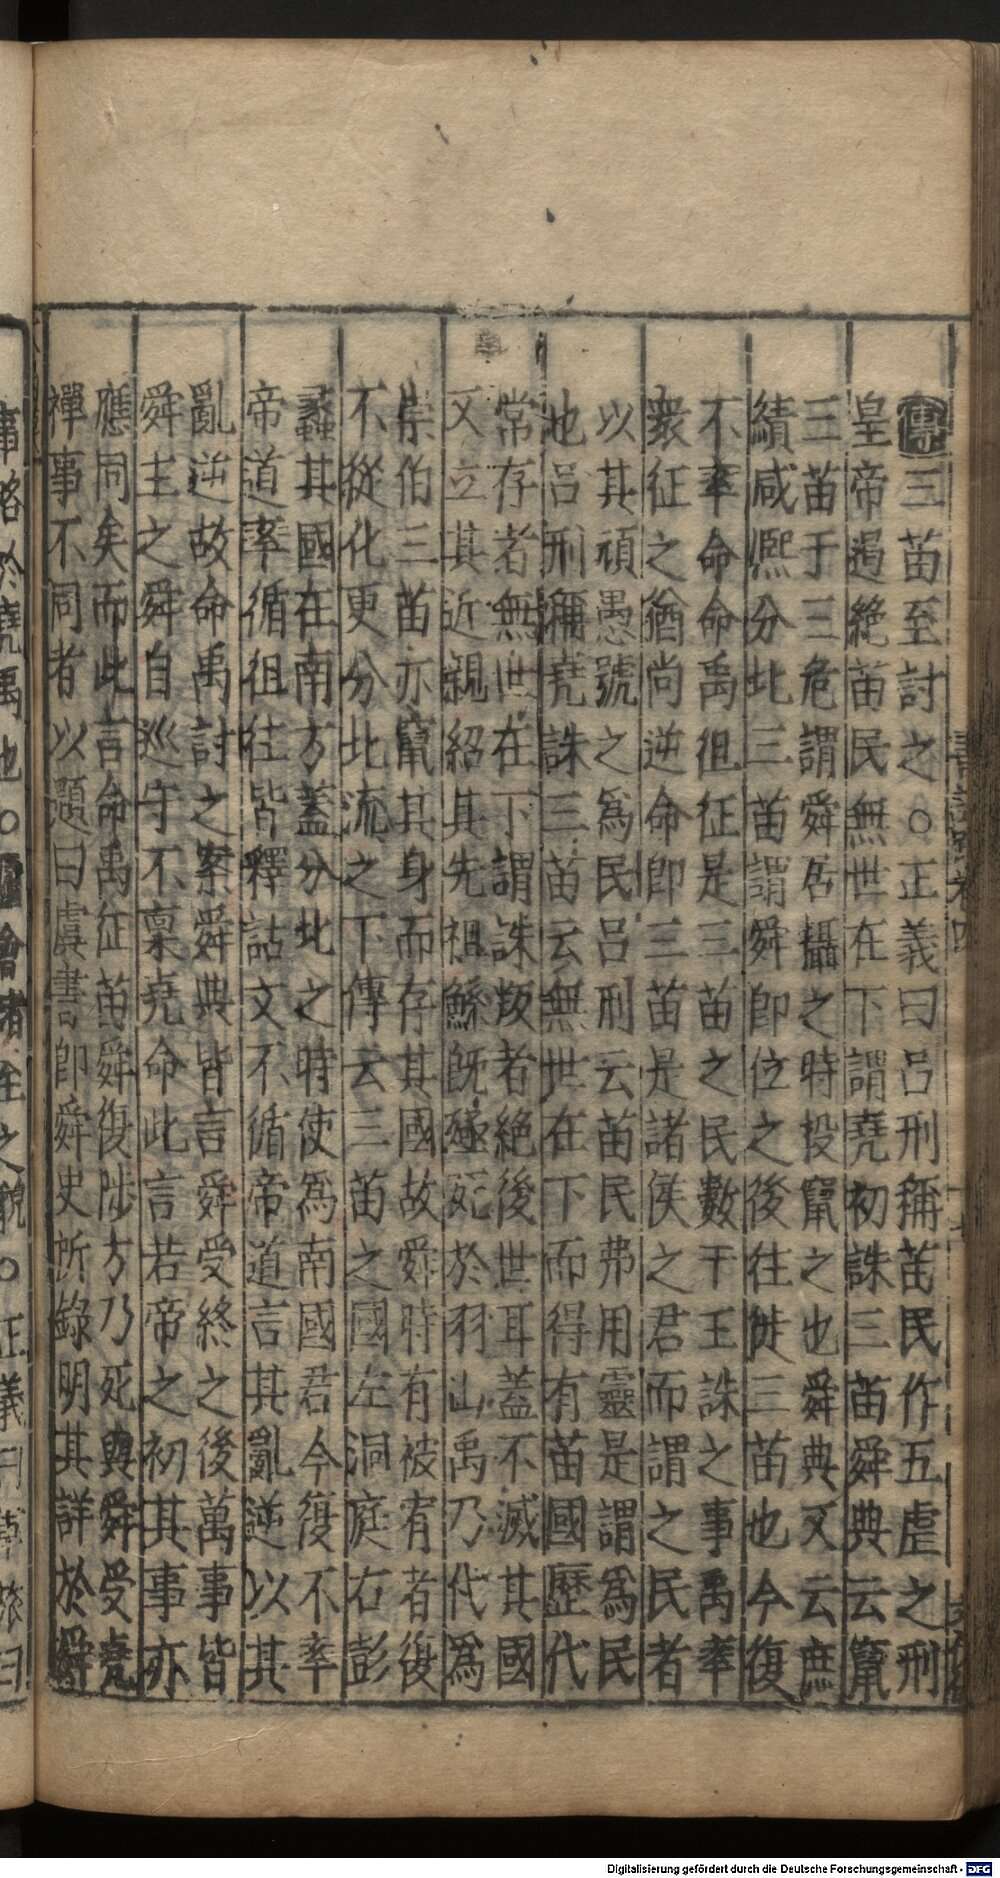 傳三苗至討之○正義曰呂刑稱苗民作五虐之刑
皇帝遏絕苗民無世在下謂堯初誅三苗舜典云竄
三苗于三危謂舜居攝之時投竄之也舜典又云庶
績咸熈分北三苗謂舜即位之後往徙三苗也今復
不率命命禹徂征是三苗之民數干王誅之事禹率
衆征之猶尚逆命即三苗是諸侯之君而謂之民者
以其頑愚號之爲民呂刑云苗民弗用靈是謂爲民
也呂刑稱堯誅三苗云無世在下而得有苗國歷代
常存者無世在下謂誅叛者絕後世耳蓋不滅其國
又立其近親紹其先祖鯀旣殛死於羽山禹乃代爲
崇伯三苗亦竄其身而存其國故舜時有被宥者復
不從化更分北流之下傳云三苗之國左洞庭右彭
蠡其國在南方蓋分北之時使爲南國君今復不率
帝道率循徂往皆釋詁文不循帝道言其亂逆以其
亂逆故命禹討之案舜典皆言舜受終之後萬事皆
舜主之舜自巡守不稟堯命此言若帝之初其事亦
應同矣而此言命禹征苗舜復陟方乃死與舜受堯
禪事不同者以題曰虞書即舜史所錄明其詳於舜
事略於堯禹也○會者至之貌○正義曰軍旅曰
Digitalisierung gefördert durch die Deutsche Forschungsgemeinschaft - DFG